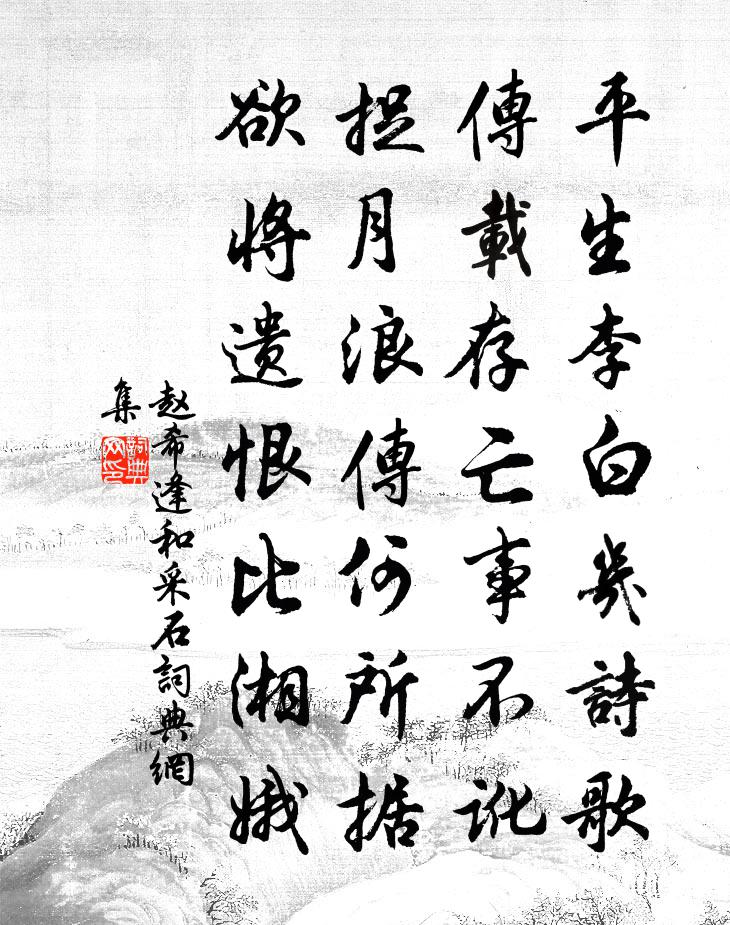 平生李白幾詩歌
傳載存亡事不訛
捉月浪傳何所据
欲將遗恨比湘娥
赵希逢和采石詞典網
集
詞典
网印